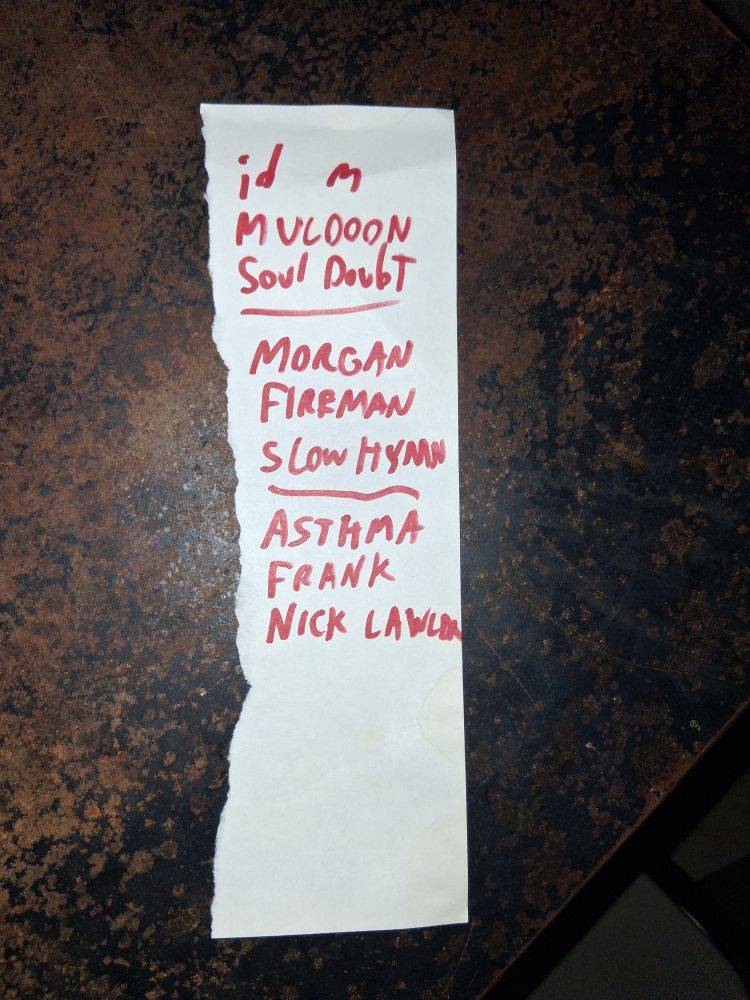 id m
MULDOON
Soul DoubT
MORGAN
FIREMAN
SLOW HYMN
ASTHMA
FRANK
NICK LAWLOR